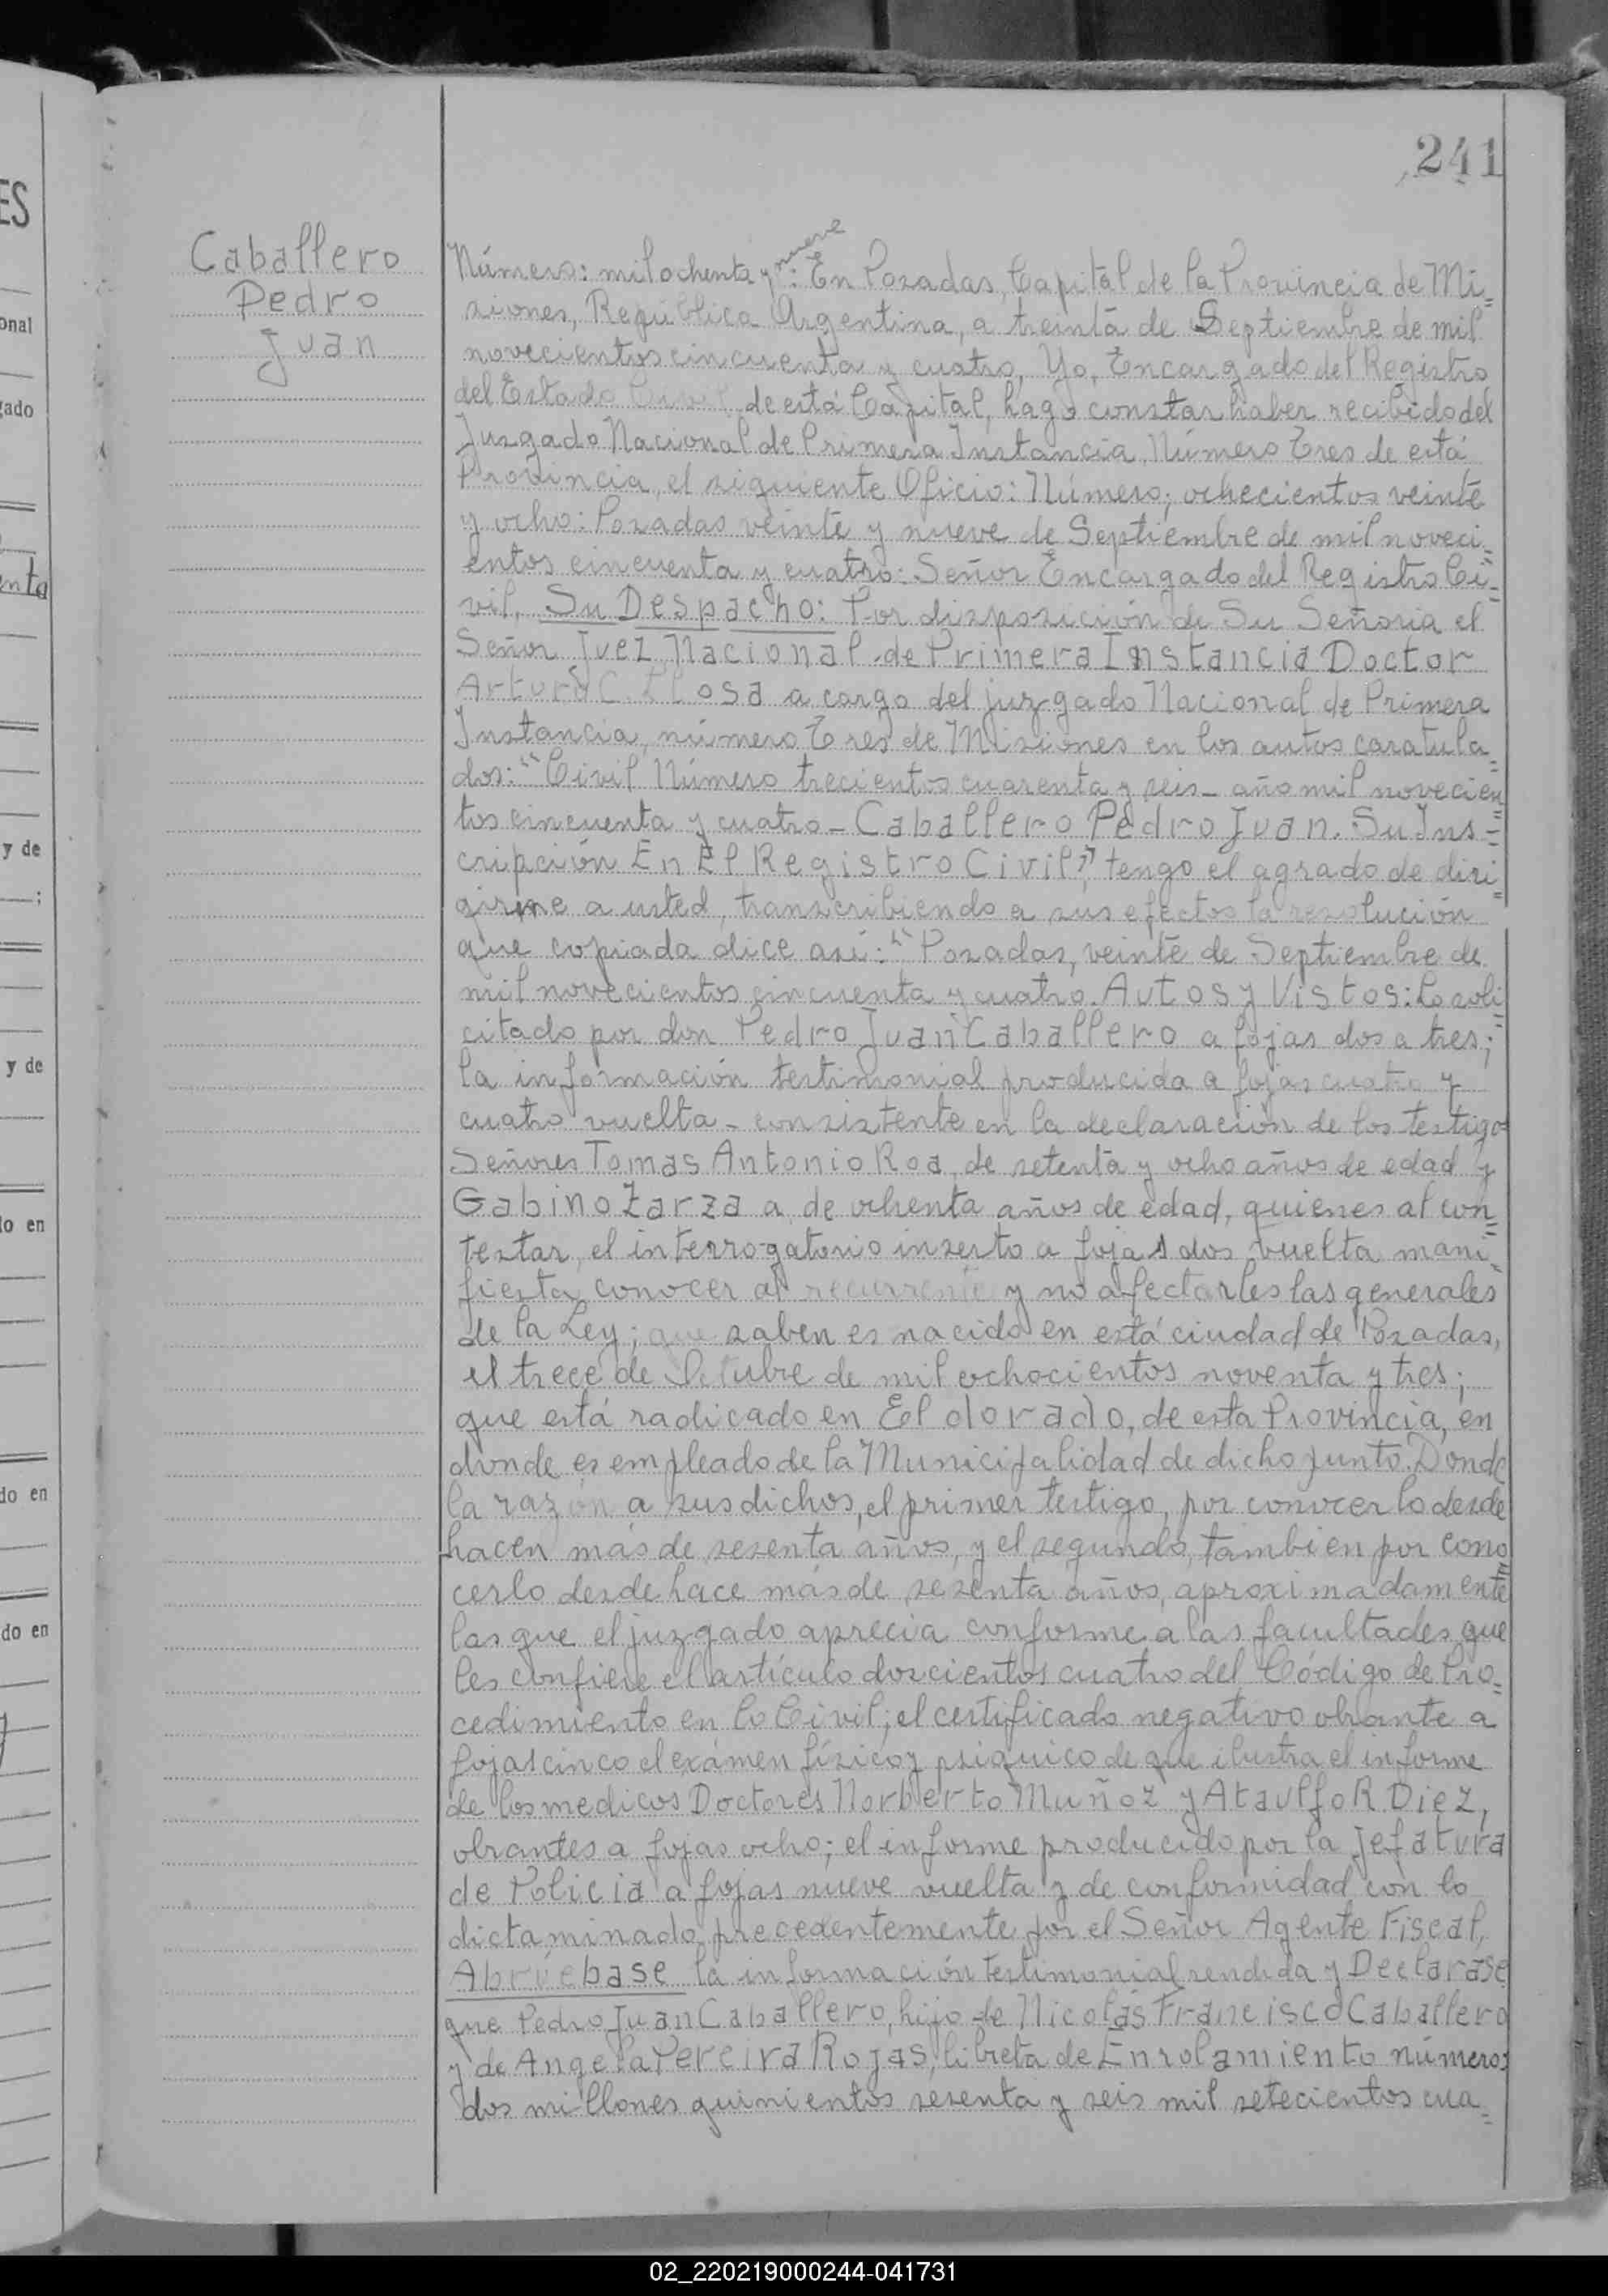 241
Caballero
Pedro
Juan
nueve
Número: mil ochenta y : En Posadas, Capital de la Provincia de Mi=
siones, República Argentina, a treinta de Septiembre de mil
novecientos cincuenta y cuatro, Yo, Encargado del Registro
del Estado Civil de está Capital, hago constar haber recibido del
Juzgado Nacional de Primera Instancia Número Tres de está
Provincia, el siguiente Oficio: Número; ochecientos veinte
y ocho: Posadas veinte y nueve de Septiembre de mil noveci=
entos cincuenta y cuatro: Señor Encargado del Registro Ci=
vil. Su Despacho: Por disposición de Su Señoria el
Señor Juez Nacional de Primera Instancia Doctor
Arturo C. Llosa a cargo del juzgado Nacional de Primera
Instancia, número Tres de Misiones en los autos caratula=
dos: "Civil Número trecientos cuarenta y seis - año mil novecien
tos cincuenta y cuatro - Caballero Pedro Juan. Su Ins=
cripción En El Registro Civil", tengo el agrado de diri=
girme a usted, transcribiendo a sus efectos la resolución
que copiada dice asi: "Posadas, veinte de Septiembre de
mil novecientos cincuenta y cuatro. Autos y Vistos: Lo soli=
citado por don Pedro Juan Caballero a fojas dos a tres;
la información testimonial producida a fojas cuatro y
cuatro vuelta - consistente en la declaración de los testigos
Señores Tomas Antonio Roa, de setenta y ocho años de edad y
Gabino Zarza a de ochenta años de edad, quienes al con=
testar, el interrogatorio inserto a fojas dos vuelta mani=
fiesta conocer al recurrente y no afectarles las generales
de la Ley; que saben es nacido en está ciudad de Posadas,
el trece de Octubre de mil ochocientos noventa y tres;
que está radicado en Eldorado, de esta Provincia, en
donde es empleado de la Municipalidad de dicho punto. Donde
la razón a sus dichos, el primer testigo, por conocerlo desde
hacen más de sesenta años, y el segundo, tambien por cono=
cerlo desde hace más de sesenta años, aproximadamente
las que el juzgado aprecia conforme a las facultades que
les confiere el artículo doscientos cuatro del Código de Pro=
cedimiento en lo Civil; el certificado negativo obrante a
fojas cinco el exámen físico y psiquico de que ilustra el informe
de los medicos Doctores Norberto Muñoz y Ataulfo R. Diez,
obrantes a fojas ocho; el informe producido por la Jefatura
de Policia a fojas nueve vuelta y de conformidad con lo
dictaminado precedentemente por el Señor Agente Fiscal,
Abruébase la información testimonial rendida y Declarase
que Pedro Juan Caballero, hijo de Nicolás Francisco Caballero
y de Angela Pereira Rojas, libreta de Enrolamiento número:
dos millones quinientos sesenta y seis mil setecientos cua=
ES
onal
gado
enta
y de
y de
lo en
do en
do en
02_220219000244-041731